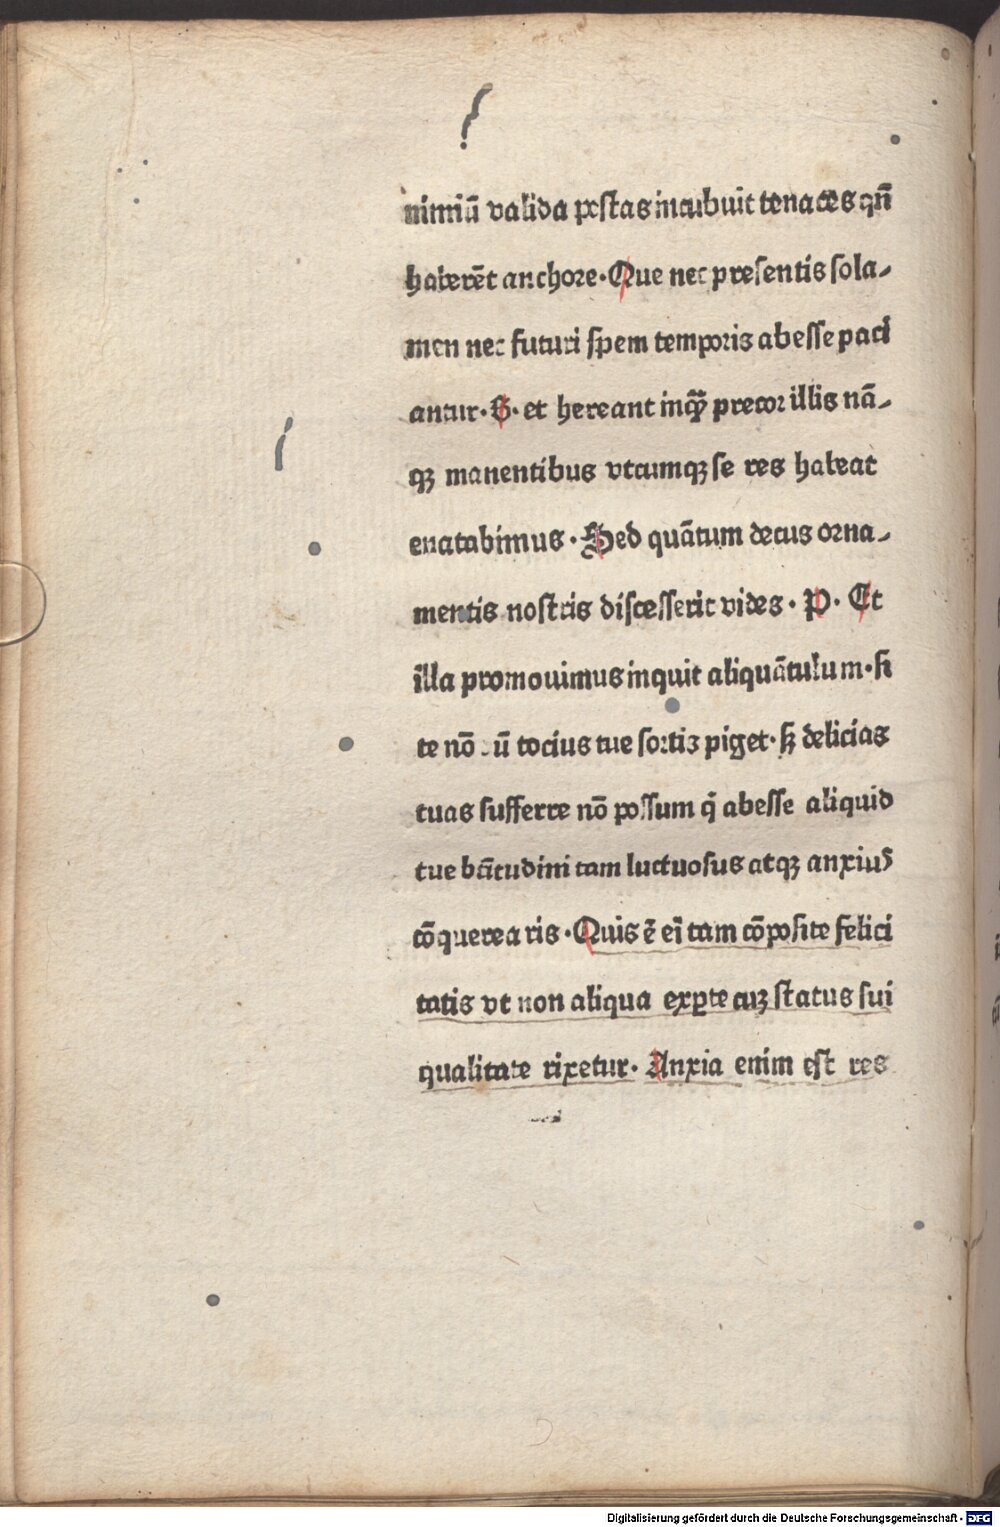 nimiū valida pestas incubuit tenaces qn̄
haberēt anchore·Que nec presentis sola⸗
men nec futuri spem temporis abesse paci
antur·B·et hereant inqȝ precor illis nā⸗
qȝ manentibus vtcumqȝ se res habeat
enatabimus·Sed quātum decus orna⸗
mentis nostris discesserit vides·P·Et
illa promouimus inquit aliquātulum·si
te nō ū tocius tue sortis piget·sȝ delicias
tuas sufferre nō possum q̄ abesse aliquid
tue btītudini tam luctuosus atqȝ anxius
cōquerearis·Quis ē ei tam cōposite felici
tatis vt non aliqua exꝑte cuȝ status sui
qualitate rixetur·Anxia enim est res
Digitalisierung gefördert durch die Deutsche Forschungsgemeinschaft · DFG